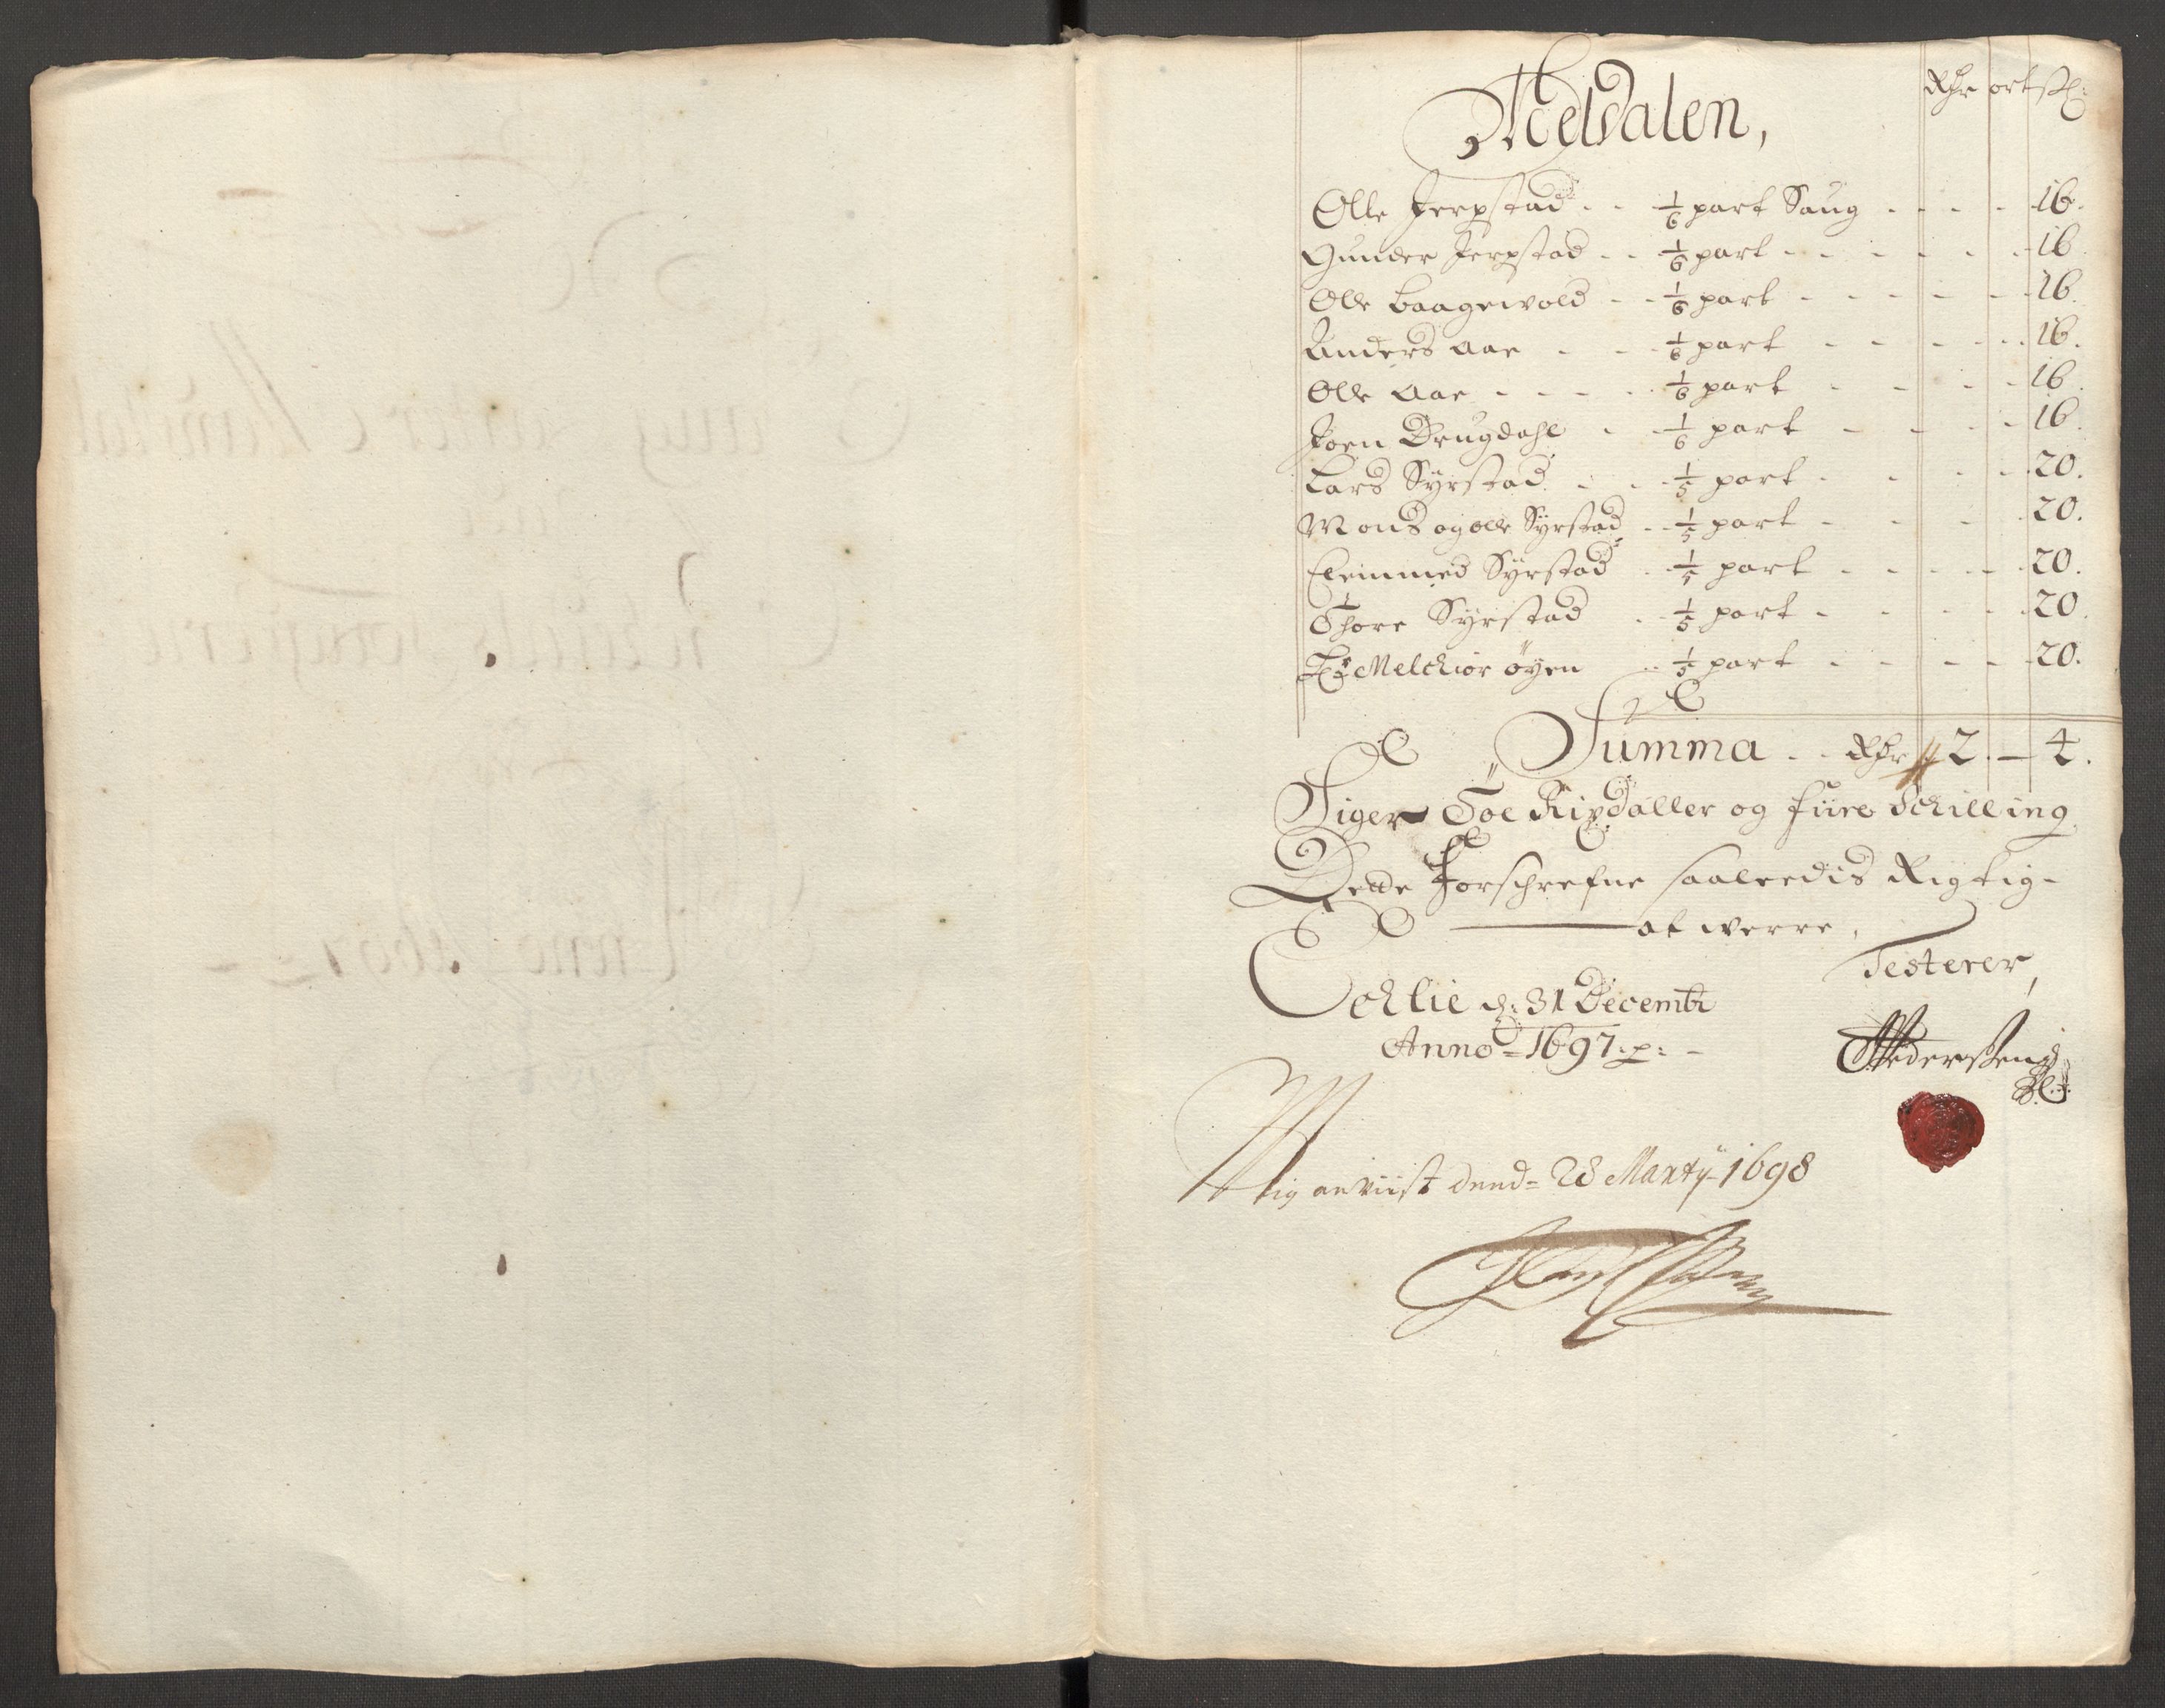 Meldalen,
Rdr ort ſß:
Olle Jerpstad - - 1/6 part Saug - - - - 16.
Gunder Jerpstad - - 1/6 part - - - - - - 16
Olle Baagewold - - 1/6 part - - - - - 16.
Anders Aae - - 1/6 part - - - - - 16.
Olle Aae - - - - 1/6 part - - - - 16.
Joen Drugdahl - - 1/6 part - - - - 16.
Lars Syrstad - - 1/5 part - - - - 20.
Mons og olle Syrstad - - 1/5 part - - - 20.
Clemmed Syrstad - 1/5 part - - - - - 20.
Thore Syrstad - 1/5 part - - - - 20.
Melchior öyen - - 1/5 part - - - - 20.
Summa - - Rdr 2 - 4.
Siger Toe Rixdaller og fiire Schilling
Dette Forschrefne saaledis Rigtig-
at werre,
Testerer,
Echlie d: 31 Decembr
Anno - 1697. p: -
Pederßen
Mig anviist dend= 28 Marty 1698